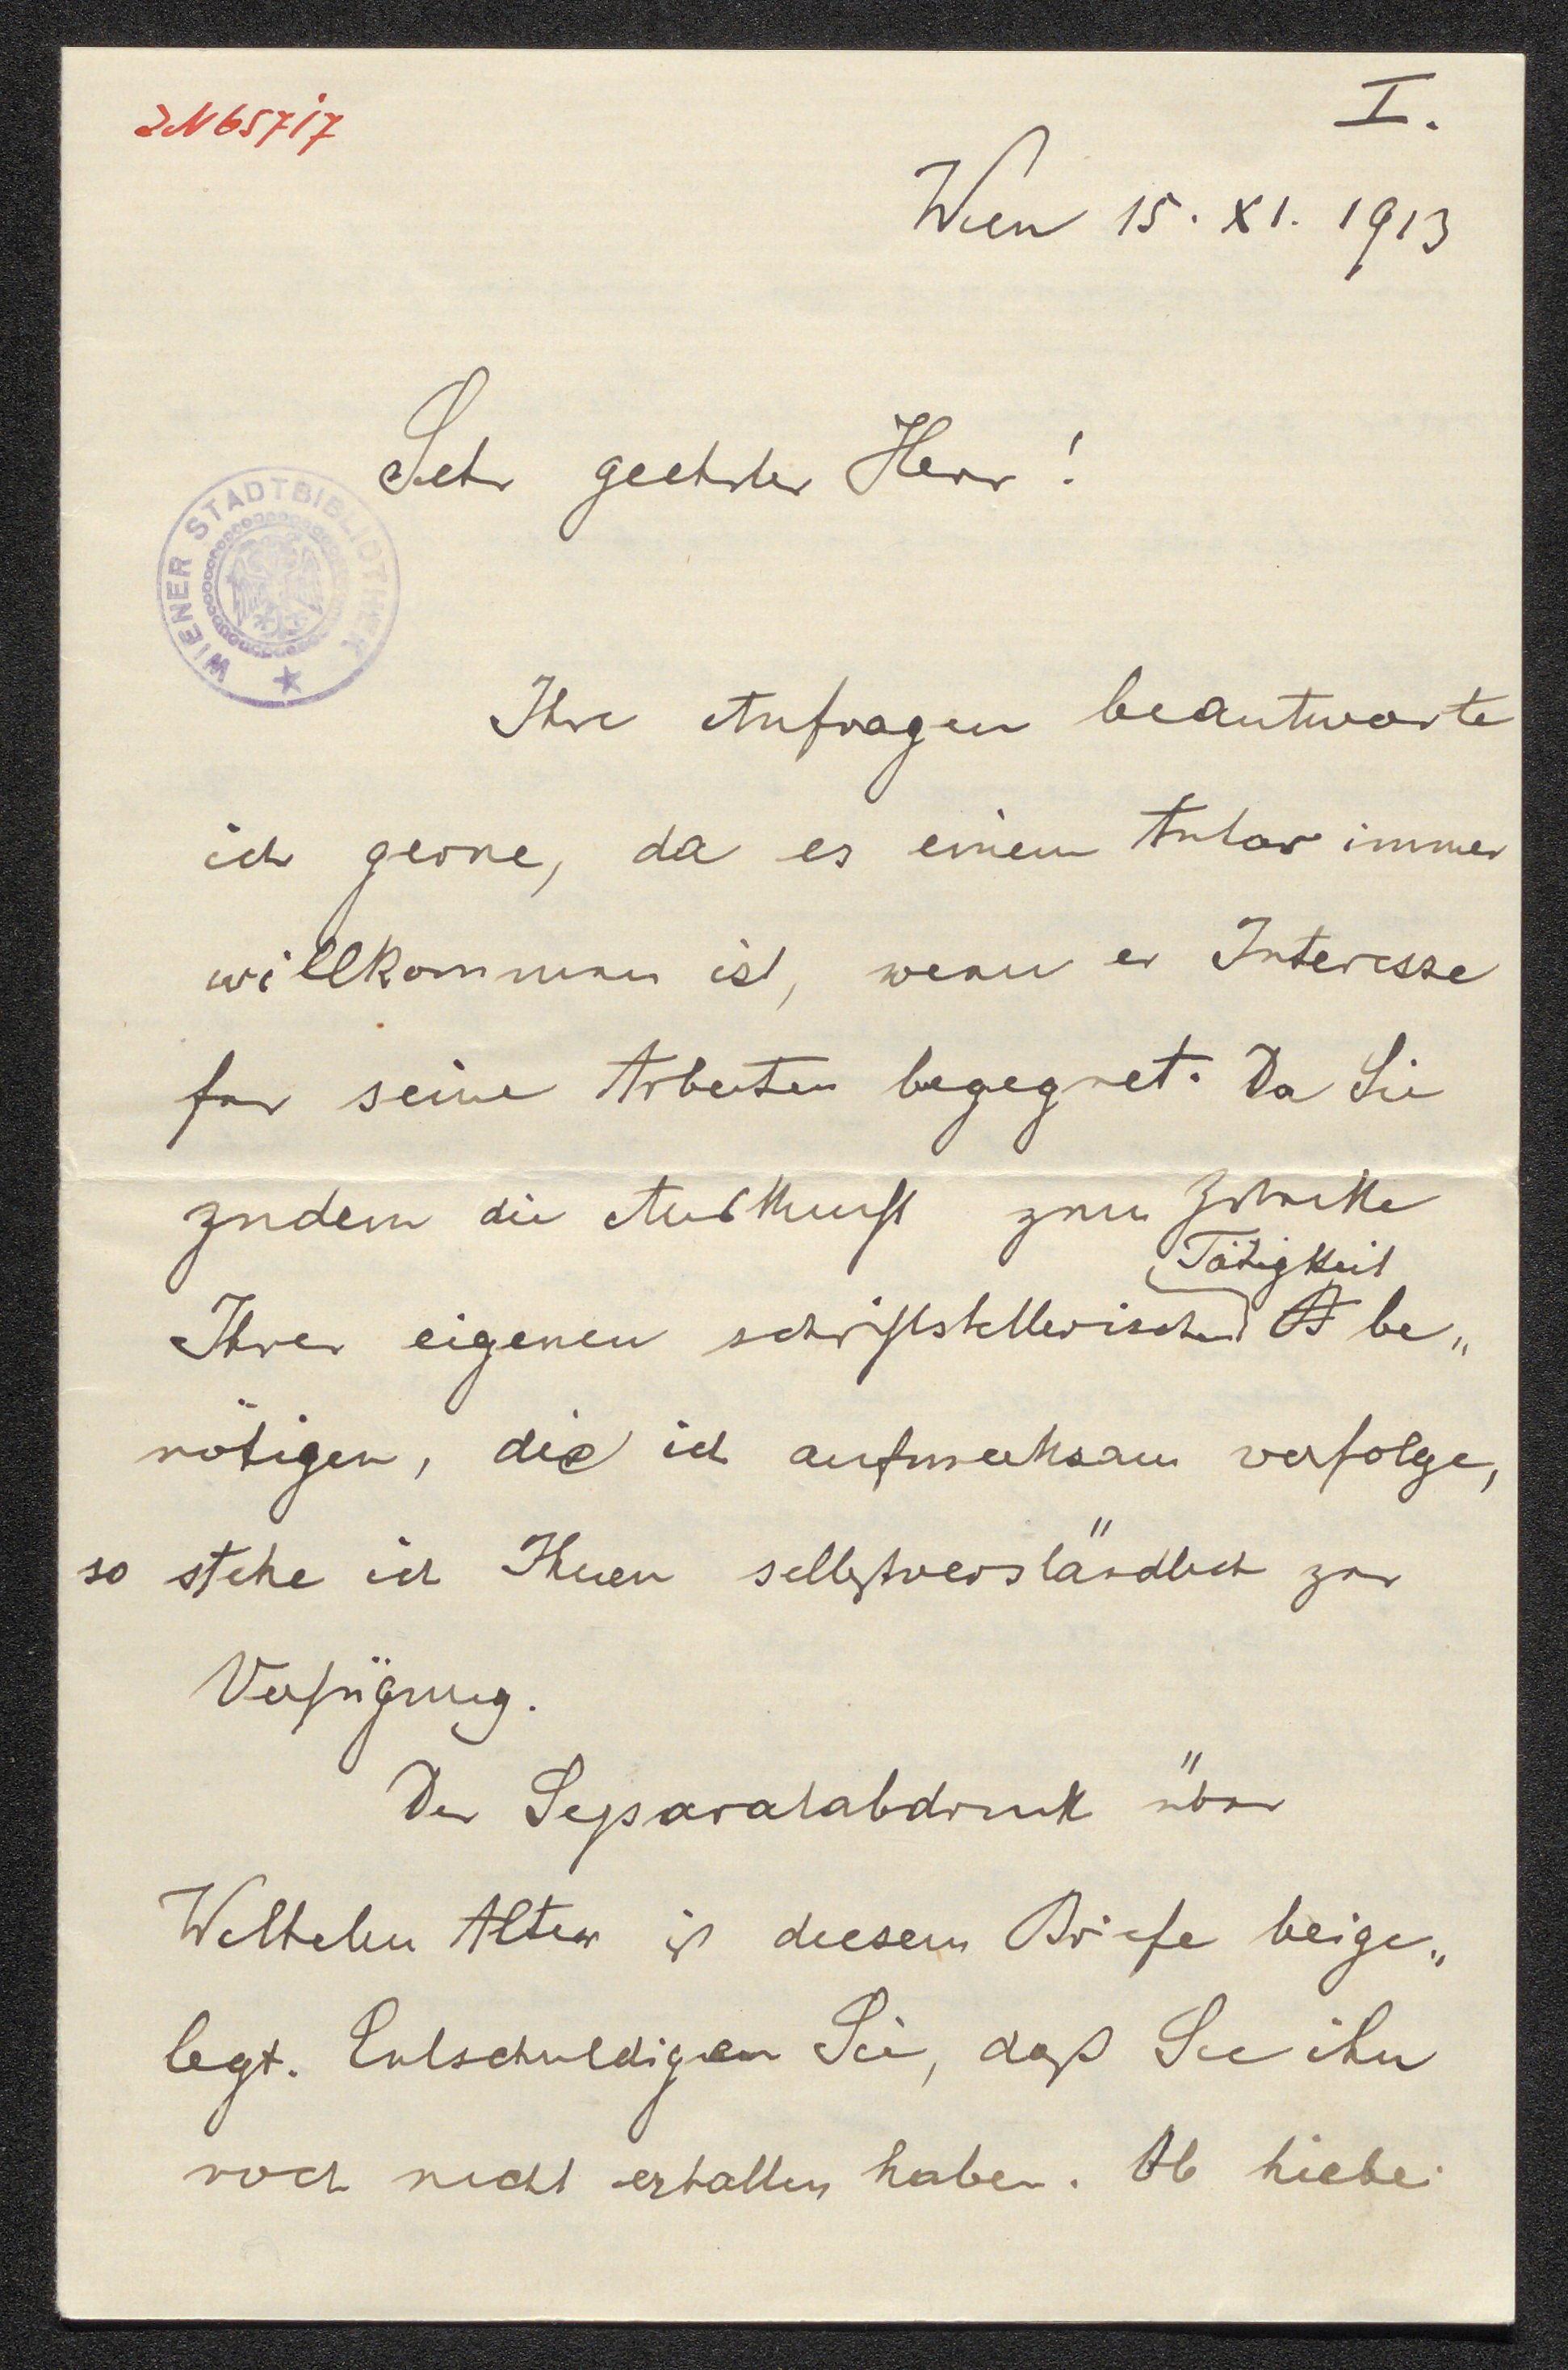 I.
IN 65717
Wien 15. XI. 1913
Sehr geehrter Herr!
WIENER STADTBIBLIOTHEK
Ihre Anfragen beantworte
ich gerne, da es einem Autor immer
willkommen ist, wenn er Interesse
für seine Arbeiten begegnet. Da Sie
zudem die Auskunft zum Zwecke
Tätigkeit
Ihrer eigenen schriftstellerischen be„
nötigen, die ich aufmerksam verfolge,
so stehe ich Ihnen selbstverständlich zur
Verfügung.
Der Separatabdruck über
Wilhelm Alter ist diesem Briefe beige„
legt. Entschuldigen Sie, daß Sie ihn
noch nicht erhalten haben. Ob hiebei